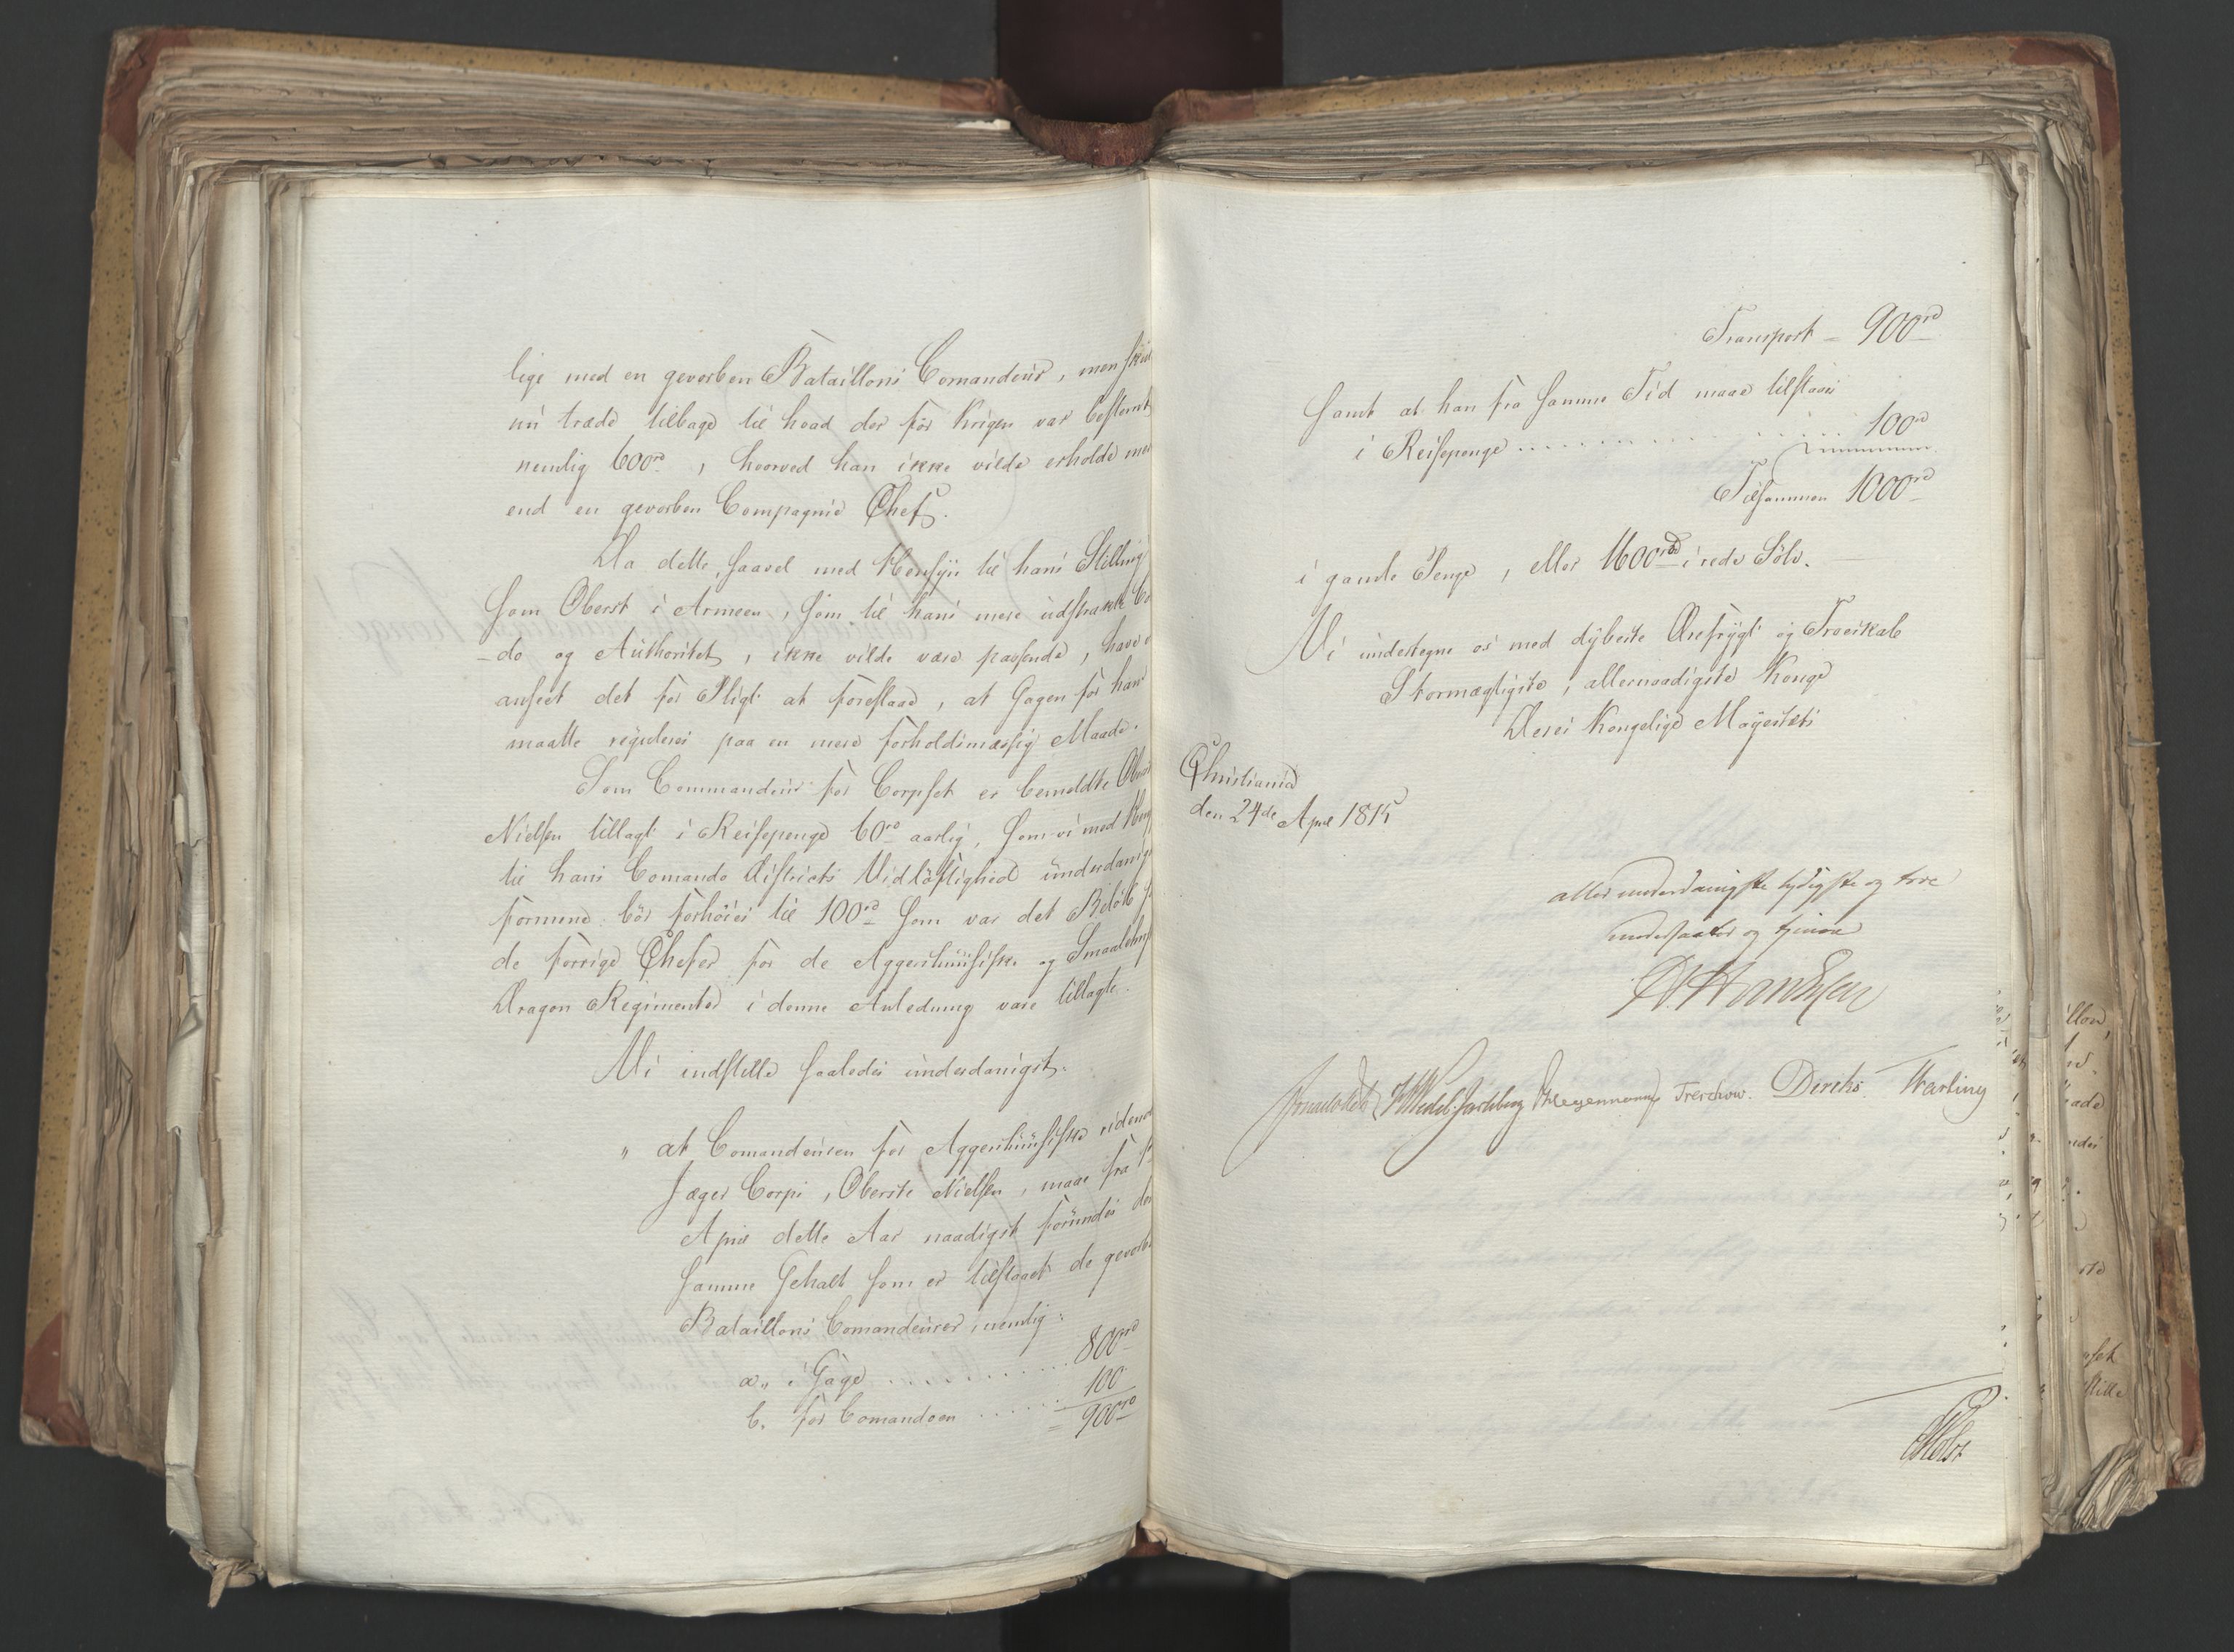 lige med en gevorben Bataillons Comandeur, men
nu træde tilbage til hvad der før Krigen var bestemt
nemlig 600rd, hvorved han ikke vilde erholde
end en gevorben Compagnie Chef.
Da dette, saavel med Hensyn til hans Stilling
som Oberst i Armeen, som til hans mere udstrakte
-do og Authoritet, ikke vilde være passende, have
anseet det for Pligt at foreslaae, at Gagen for ham
maatte reguleres paa en mere forholdsmæssig Maade.
Som Commandeur for Corpset er bemeldte
Nielsen tillagt i Reisepenge 60rd aarlig, som vi med
til hans Comando Districts Vidløftighed underdanigst
formene bør forhøies til 100rd som var det Beløb
de forrige Chefer for de Aggershuusiske og Smaalehnske
Dragon Regimenter i denne Anledning vare tillagte.
Vi indstille saaledes underdanigst:
" at Comandeuren for Aggershuusiske ridende
Jæger Corps, Oberste Nielsen, maae fra
April dette Aar naadigst forundes den
samme Gehalt som er tilstaaet de gevorbne
Bataillons Comandeurer, nemlig:
a,, i Gage . . . . . . . . . . 800rd
b. for Comandoen . . . . . . 100
= 900rd
Transport = 900rd
samt at han fra samme Tid maae tilstaaes
i Reisepenge . . . . . . . . . . . . 100rd
Tilsammen 1000rd
i gamle Penge, eller 1600rd i rede Sølv.
Vi undertegne os med dybeste Ærefrygt og Troeskab
Stormægtigste, allernaadigste Konge
Deres Kongelige Mayestæts
Christiania
den 24de April 1815
allerunderdanigste lydigste og troe
undersaatter og tjenere
Wedel Jarlsberg Treschow. Diriks. Harbing
Holst